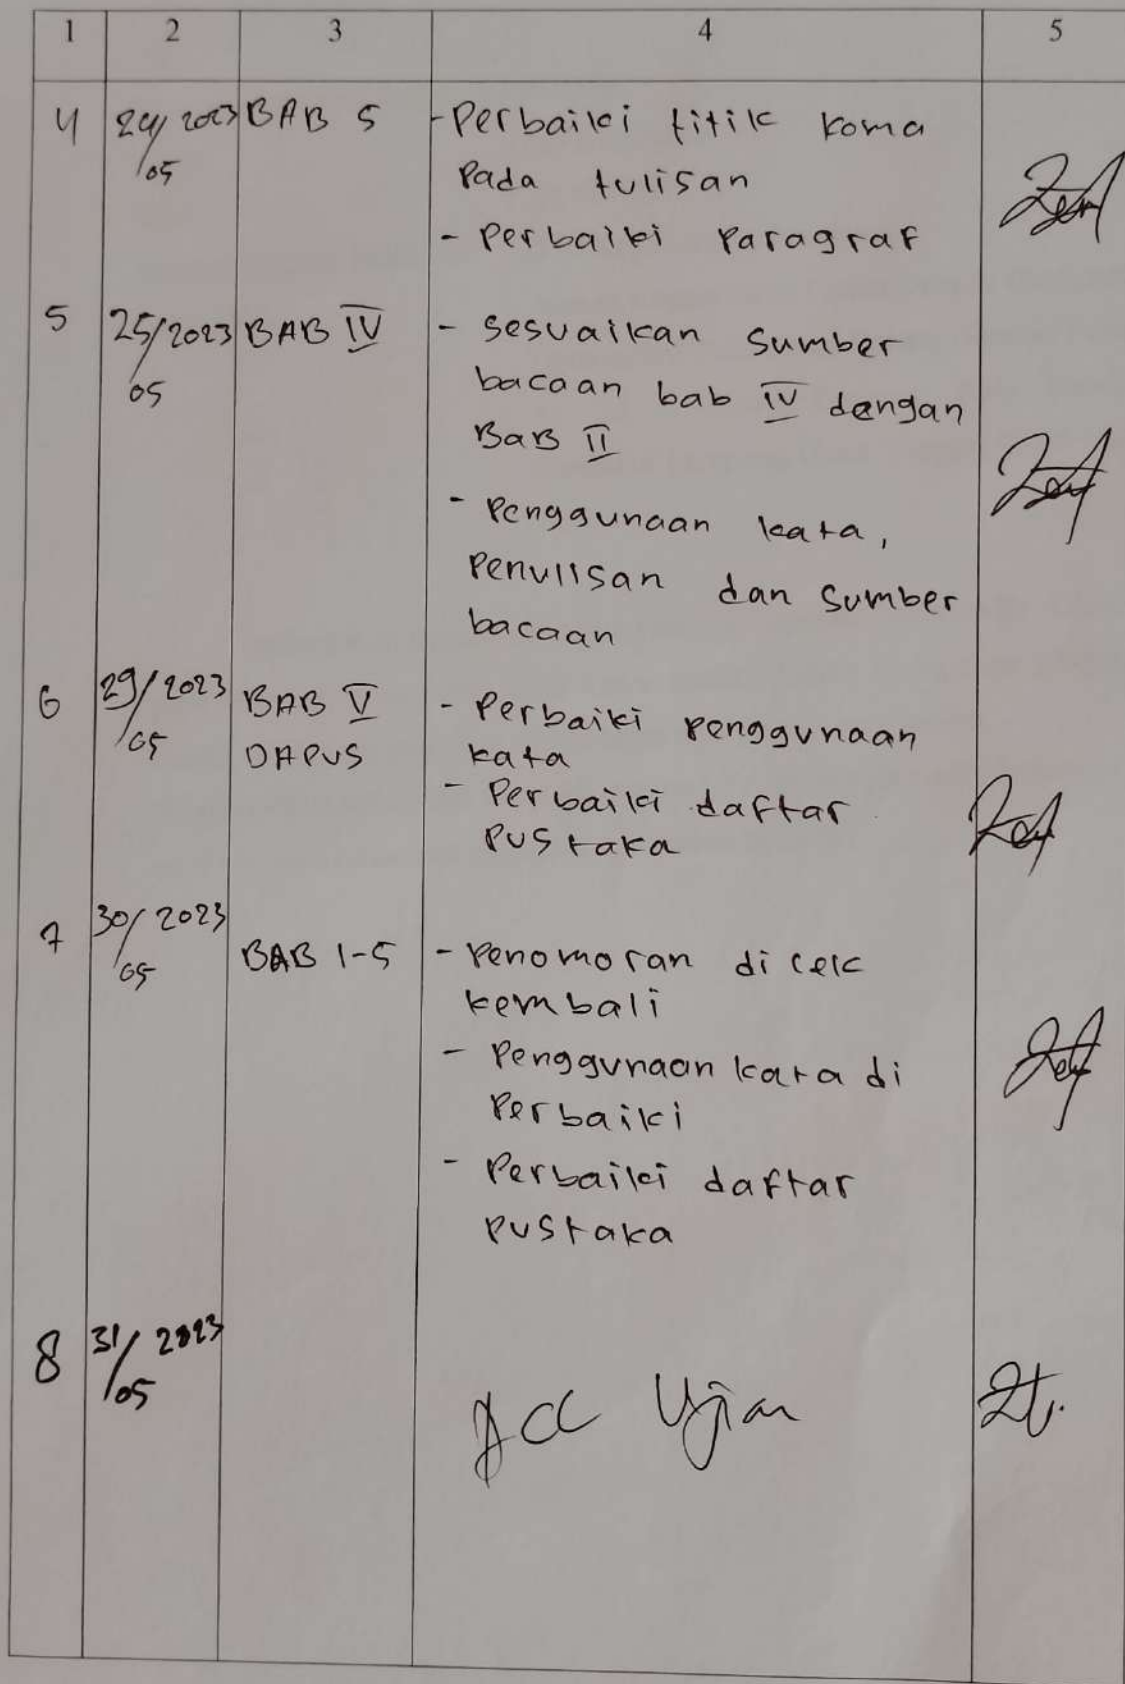 1 2 3 4 5
4 24/2023 BAB 5 - Perbaiki titik koma
/05 Pada tulisan
- Perbaiki Paragraf
5 25/2023 BAB IV - Sesuaikan Sumber
/05 bacaan bab IV dengan
BaB II
- Penggunaan kata,
Penulisan dan Sumber
bacaan
6 29/2023 BAB V - Perbaiki Penggunaan
/05 DAPUS kata
- Perbaiki daftar
Pustaka
7 30/2023
/05 BAB 1-5 - Penomoran di cek
kembali
- Penggunaan kata di
Perbaiki
- Perbaiki daftar
Pustaka
8 31/2023
/05
Acc Ujian